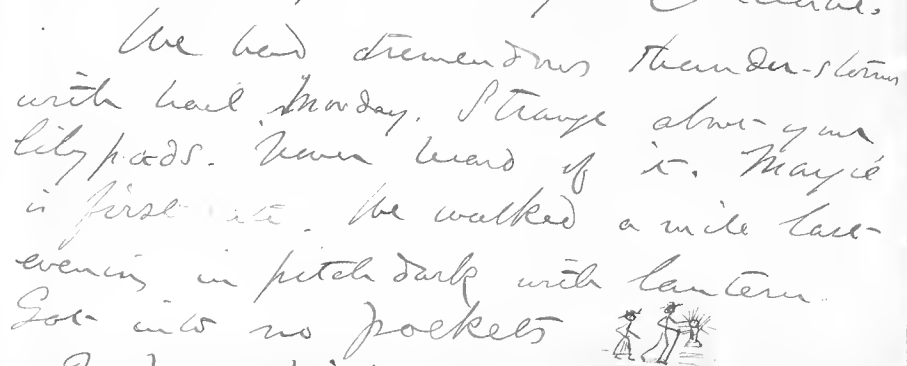 We had tremendous thunder-storms
with hail Monday. Strange about your
lily pads. Never heard of it. Margie
is first rate. We walked a mile last
evening in pitch dark with lantern.
Got into no pockets